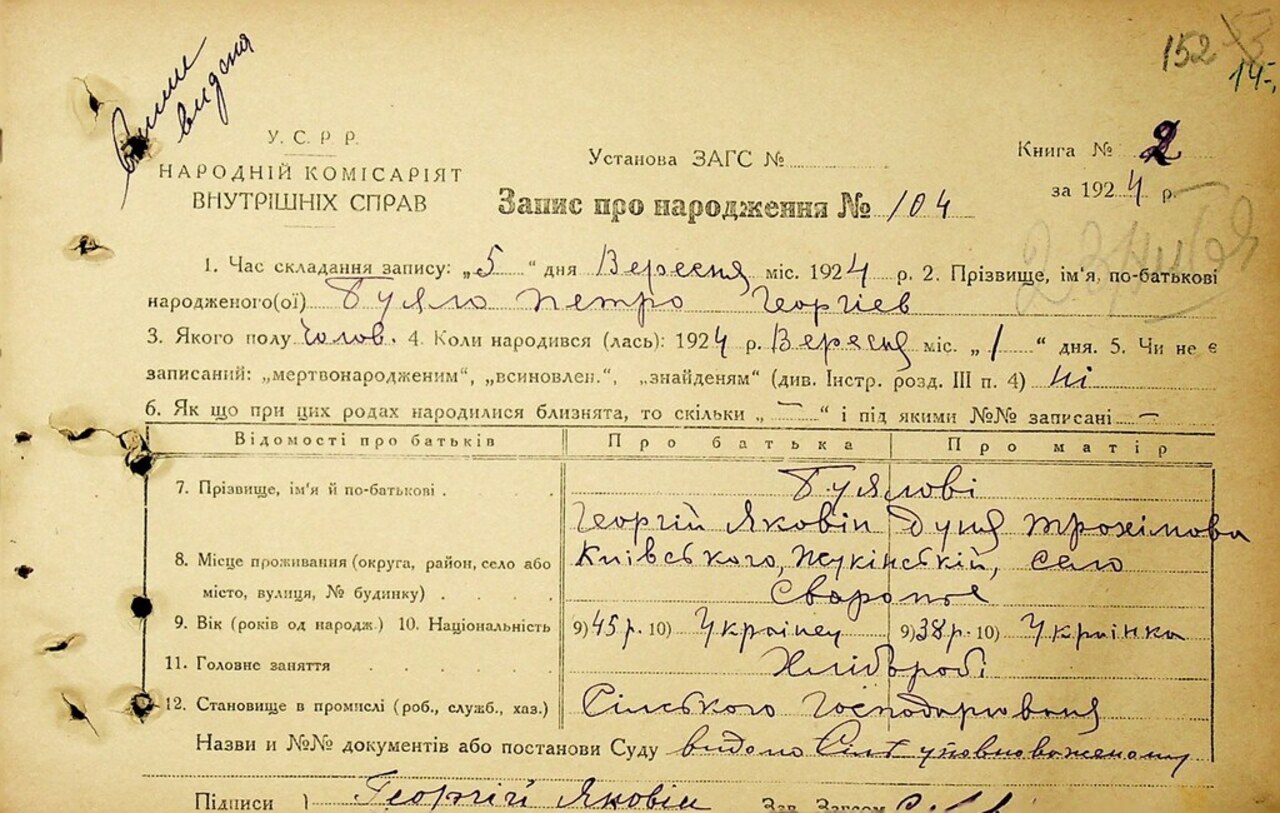 152 53
14-,
видана
У. С. Р. Р.
НАРОДНІЙ КОМІСАРІЯТ
ВНУТРІШНІХ СПРАВ
Установа ЗАГС №
Запис про народження № 104
Книга № 2
за 1924 р.
1. Час складання запису: „5“ дня Вересня міс. 1924 р. 2. Прізвище, ім'я, по-батькові
народженого(ої) Гуяло Петро Георгіев
3. Якого полу Чолов. 4. Коли народився (лась): 1924 р. Вересня міс. „1“ дня. 5. Чи не є
записаний: „мертвонародженим“, „всиновлен.“, „знайденям“ (див. Інстр. розд. III п. 4) ні
6. Як що при цих родах народилися близнята, то скільки „—“ і під якими №№ записані —
Відомості про батьків Про батька Про матір
7. Прізвище, ім'я й по-батькові . Гуялові
Георгій Яковін Дуня Трохімова
8. Місце проживання (округа, район, село або Київського, Жукінській, село
місто, вулиця, № будинку) . . . . . Сваромье
9. Вік (років од народж.) 10. Національність 9) 45 р. 10) Украінец 9) 38 р. 10) Українка
11. Головне заняття . . . . . . Хлібороб
12. Становище в промислі (роб., служб., хаз.) Сільського Господарюваня
Назви и №№ документів або постанови Суду видано Сіль уповноваженому
Підписи } Георгій Яковін Зав. Загсом